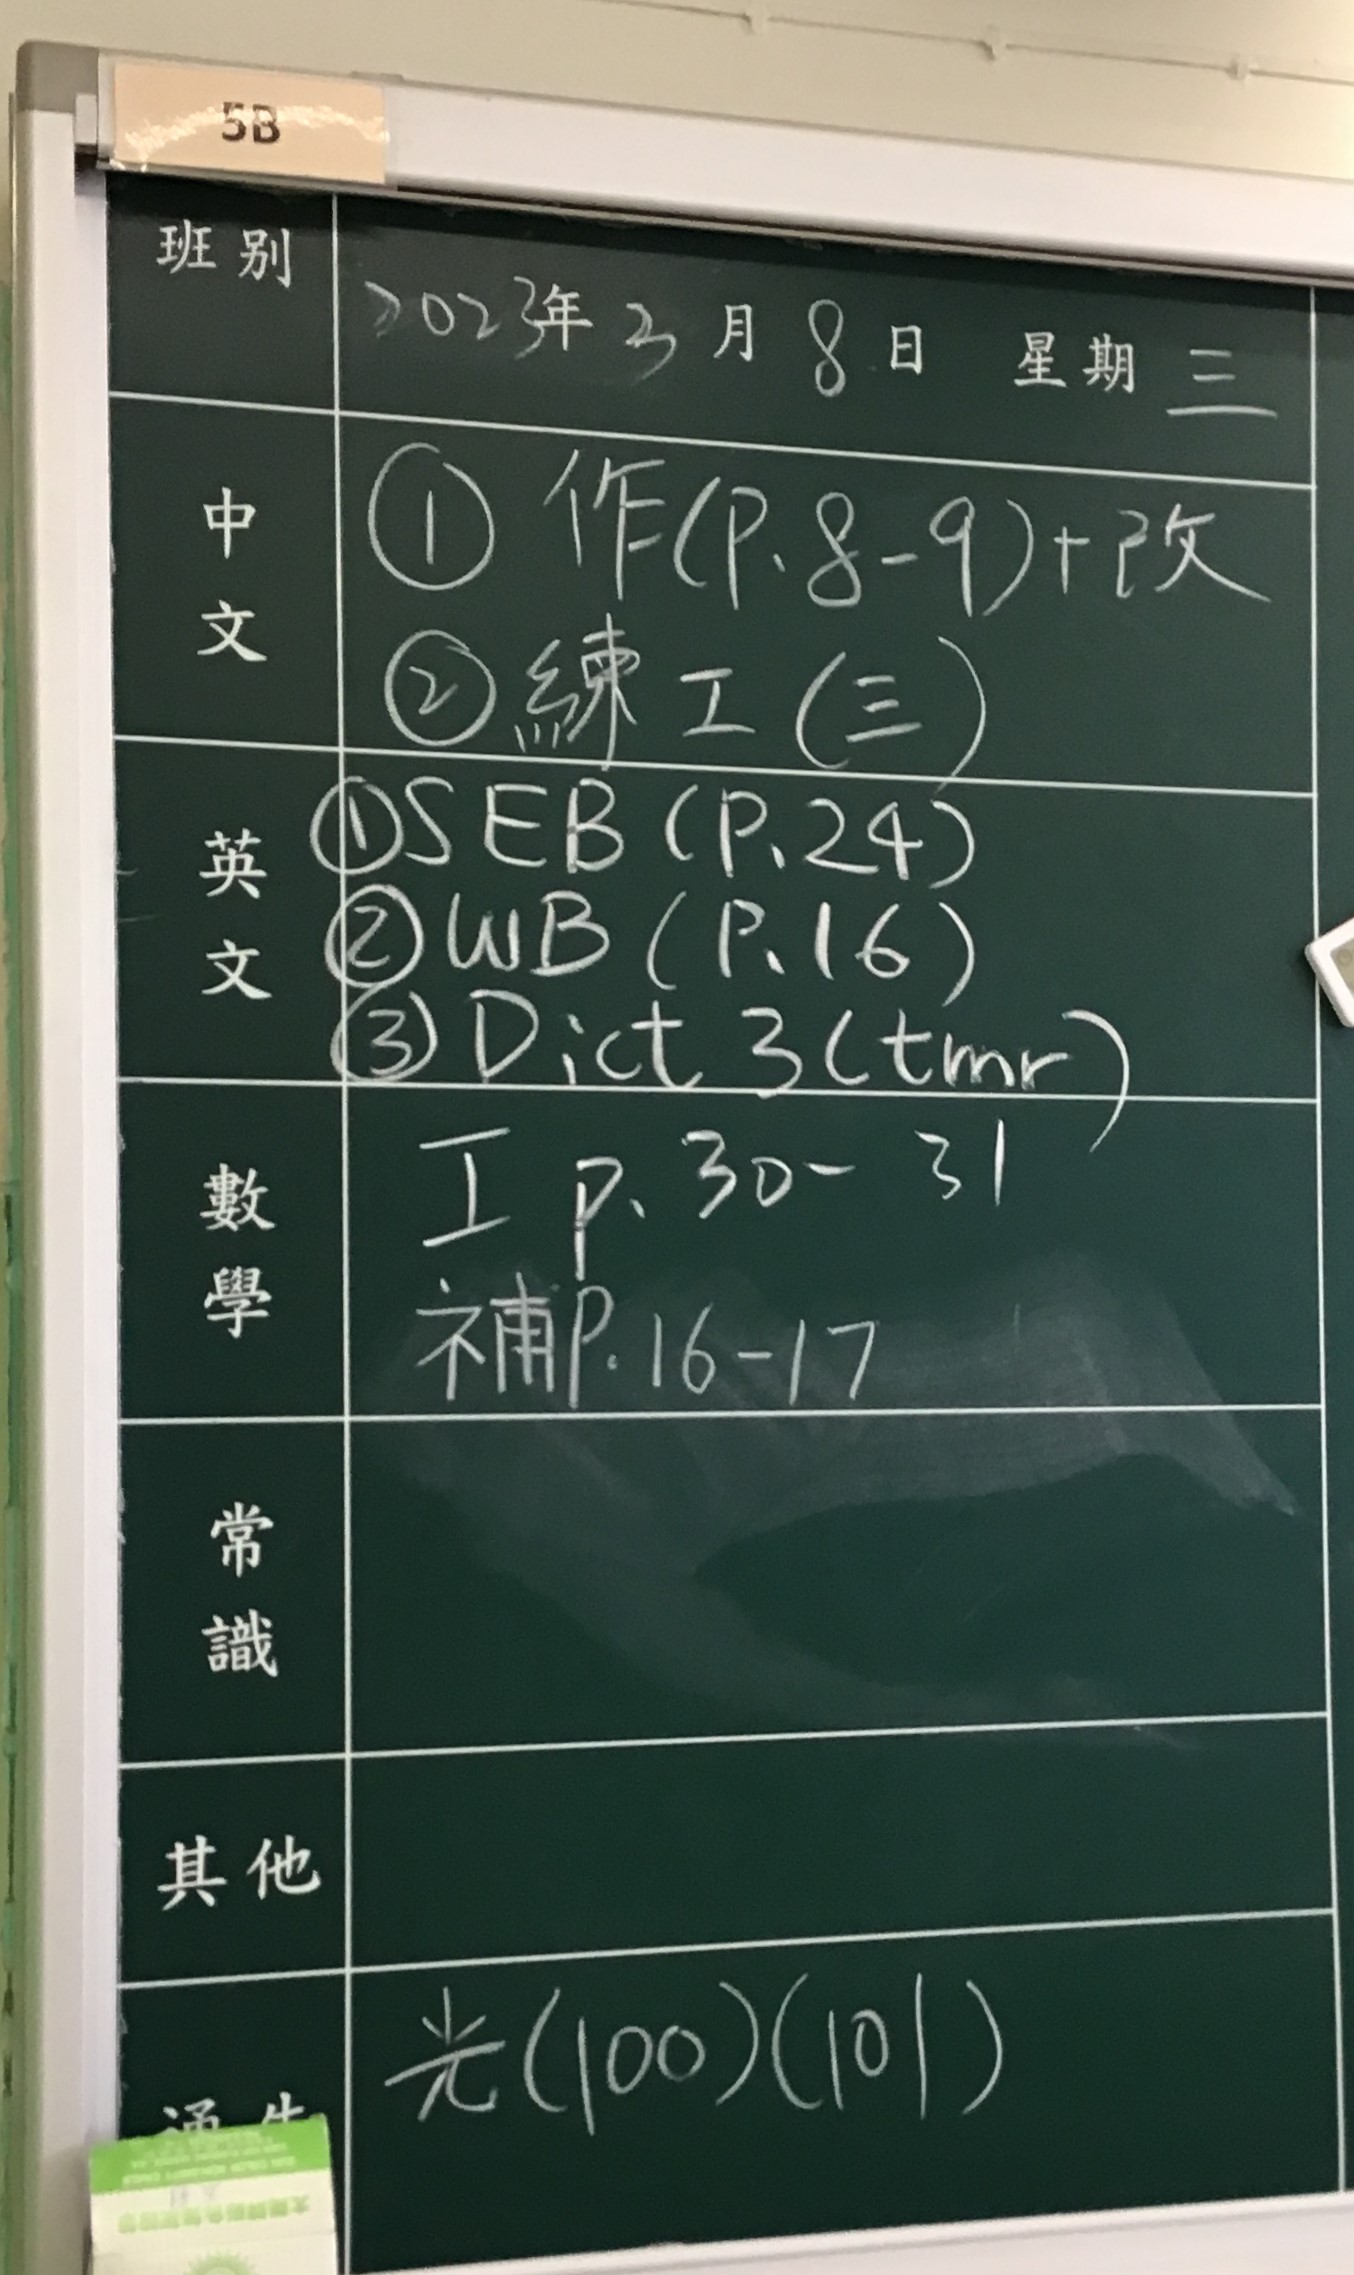 5B
班別
2023年3月8日 星期三
中文
① 作(P.8-9)+改
② 練工(三)
英文
① SEB (P.24)
② WB (P.16)
③ Dict 3 (tmr)
數學
工 p. 30-31
補P.16-17
常識
其他
通告
光(100)(101)